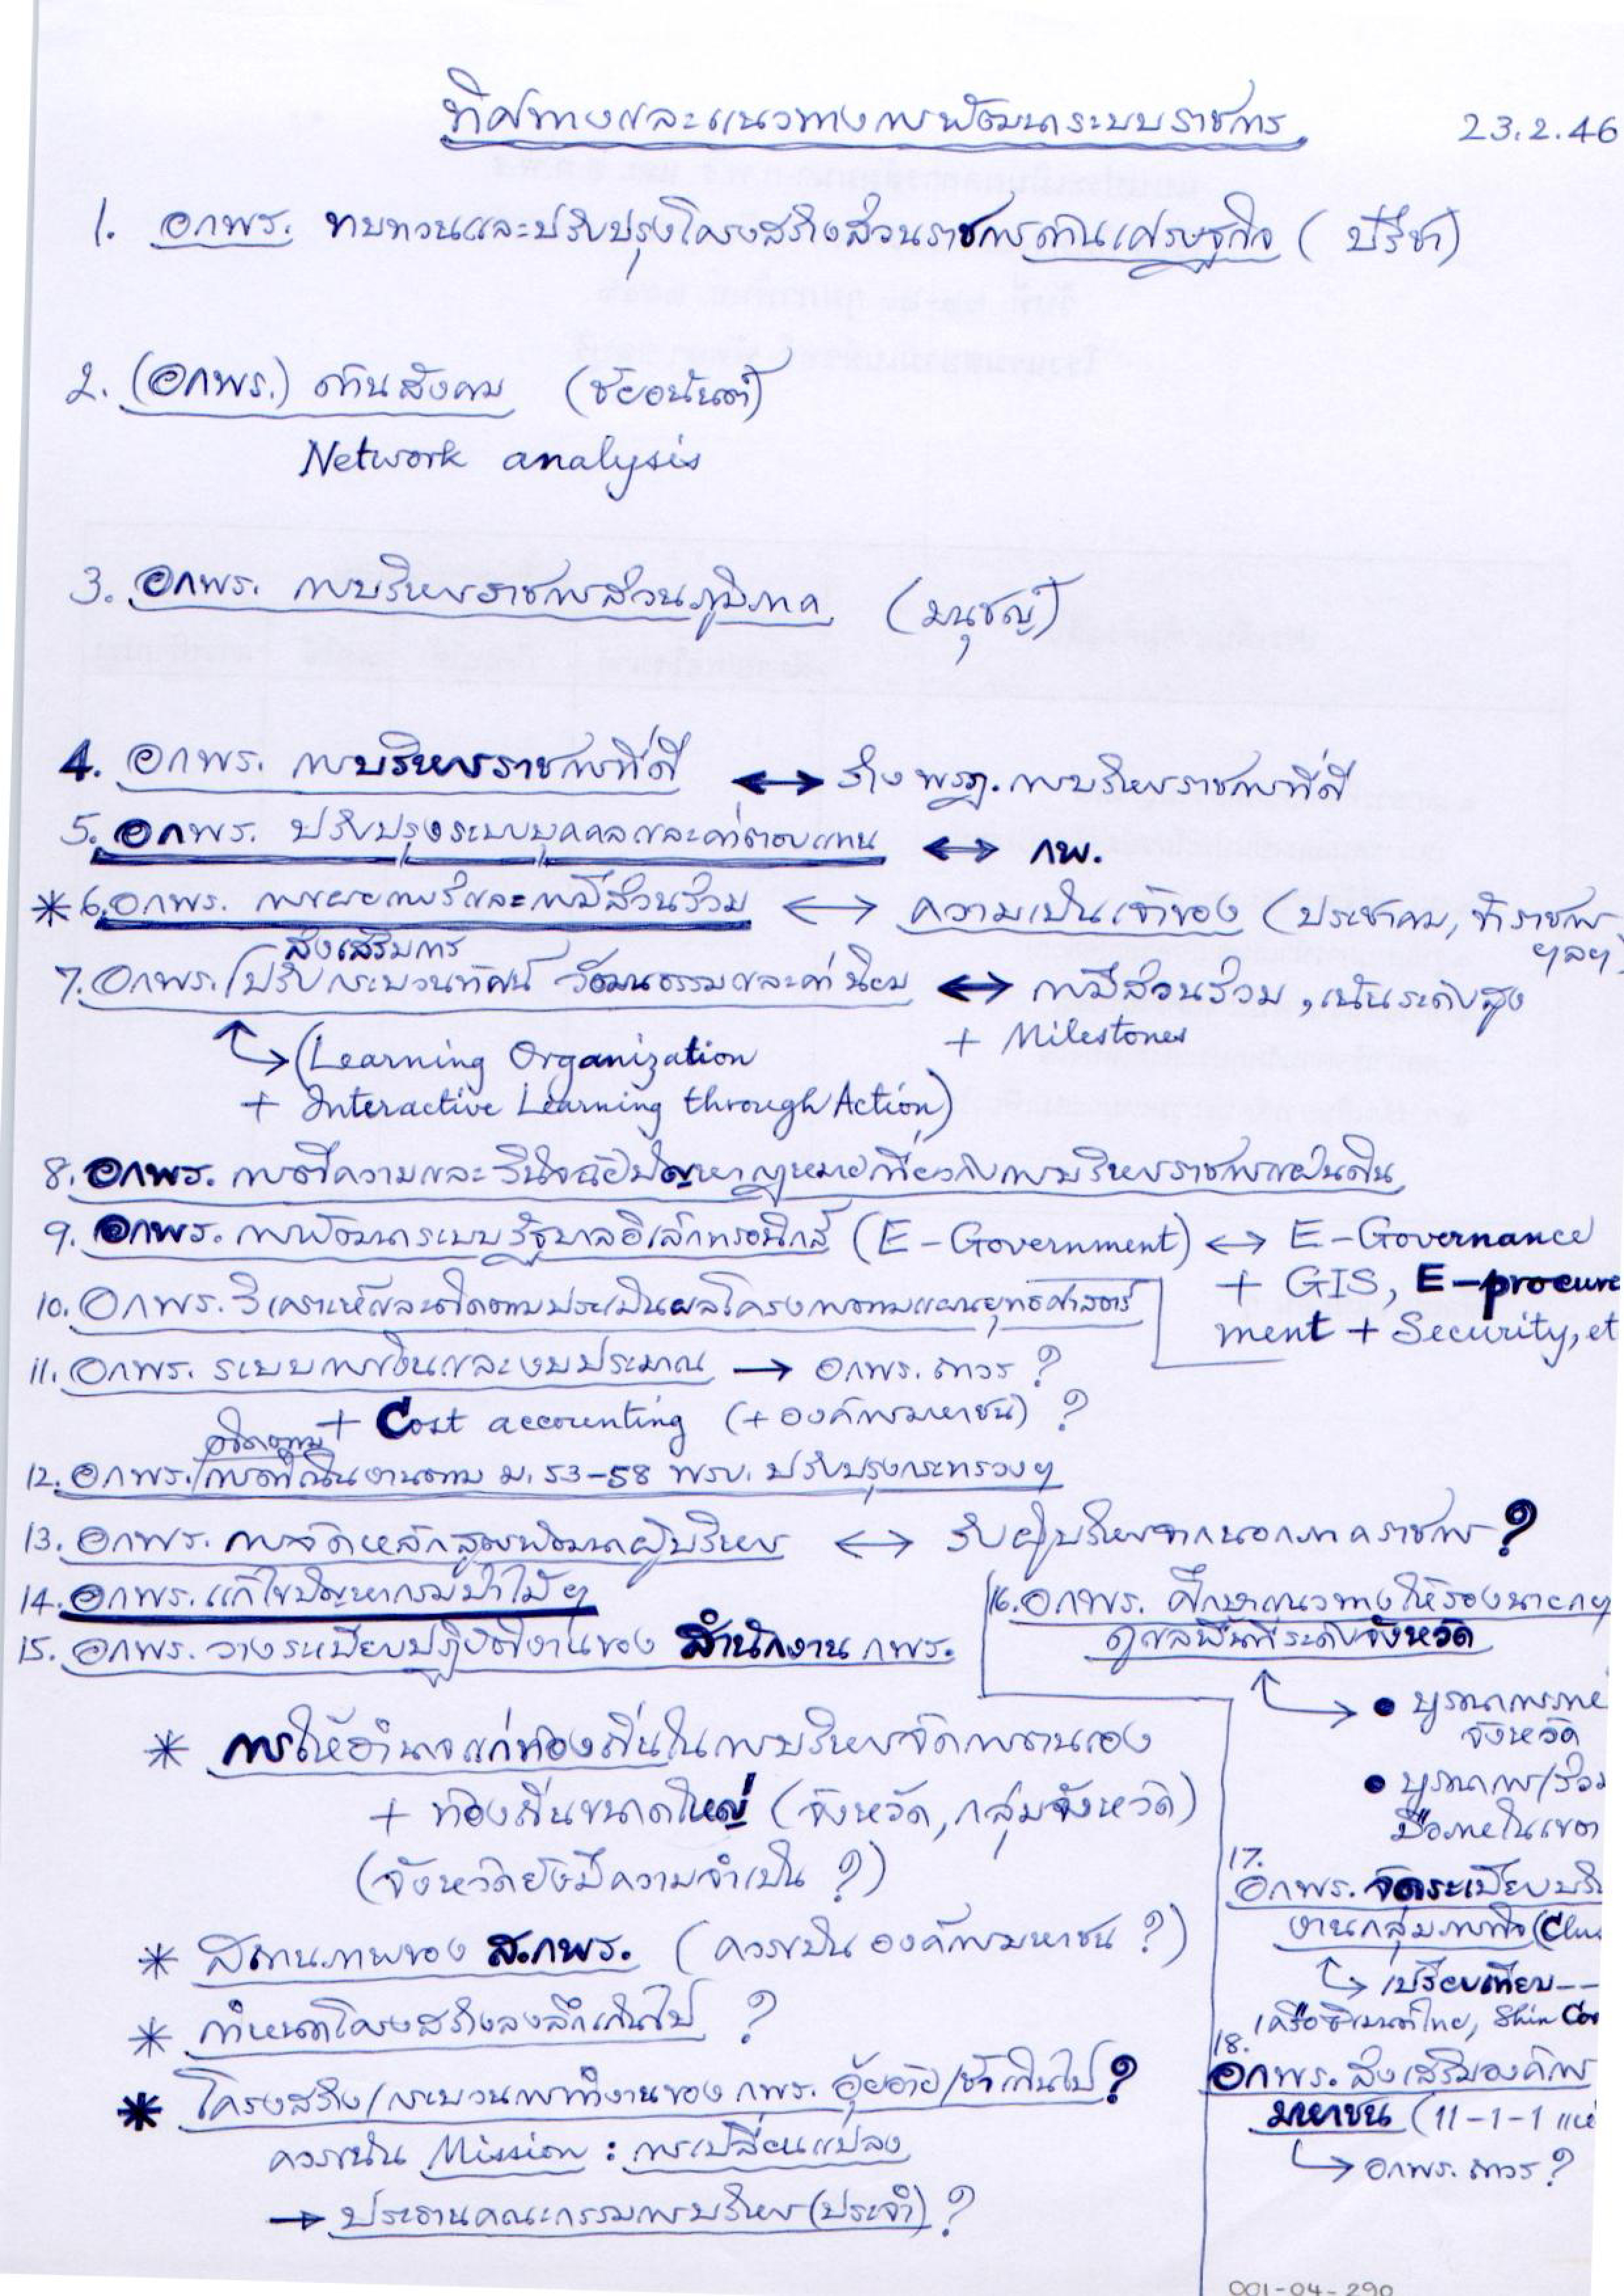 ทิศทางและแนวทางการพัฒนาระบบราชการ 23.2.46
1. อกพร. ทบทวนและปรับปรุงโครงสร้างส่วนราชการด้านเศรษฐกิจ (ปรีชา)
2. (อกพร.) ด้านสังคม (ชัยอนันต์)
Network analysis
3. อกพร. การบริหารราชการส่วนภูมิภาค (มนุชญ์)
4. อกพร. การบริหารราชการที่ดี ↔ ร่าง พรฎ. การบริหารราชการที่ดี
5. อกพร. ปรับปรุงระบบบุคคลและค่าตอบแทน ↔ กพ.
* 6. อกพร. การเผยแพร่และการมีส่วนร่วม ↔ ความเป็นเจ้าของ (ประชาคม, ข้าราชการ
ฯลฯ)
ส่งเสริมการ
7. อกพร./ปรับกระบวนทัศน์ วัฒนธรรมและค่านิยม ↔ การมีส่วนร่วม, เน้นระดับสูง
+ Milestones
(Learning Organization
+ Interactive Learning through Action)
8. อกพร. การตีความและวินิจฉัยปัญหากฎหมายเกี่ยวกับการบริหารราชการแผ่นดิน
9. อกพร. การพัฒนาระบบรัฐบาลอิเล็กทรอนิกส์ (E-Government) ↔ E-Governance
+ GIS, E-procure
ment + Security, et
10. อกพร. วิเคราะห์และติดตามประเมินผลโครงการตามแผนยุทธศาสตร์
11. อกพร. ระบบการเงินและงบประมาณ → อกพร. ถาวร ?
+ Cost accounting (+ องค์การมหาชน) ?
ติดตาม
12. อกพร./การดำเนินงานตาม ม. 53-58 พรบ. ปรับปรุงกระทรวงฯ
13. อกพร. การจัดหลักสูตรพัฒนาผู้บริหาร ↔ รับผู้บริหารจากนอกภาคราชการ ?
14. อกพร. แก้ไขปัญหากรมป่าไม้ฯ
15. อกพร. วางระเบียบปฏิบัติงานของ สำนักงาน กพร.
16. อกพร. ศึกษาแนวทางให้รองนายกฯ
ดูแลพื้นที่ระดับจังหวัด
• บูรณาการภาย
จังหวัด
• บูรณาการ/ร่วม
มือภายในเขต
* การให้อำนาจแก่ท้องถิ่นในการบริหารจัดการตนเอง
+ ท้องถิ่นขนาดใหญ่ (จังหวัด, กลุ่มจังหวัด)
(จังหวัดยังมีความจำเป็น ?)
* สถานภาพของ ส.กพร. (ควรเป็น องค์การมหาชน ?)
* กำหนดโครงสร้างลงลึกเกินไป ?
* โครงสร้าง/กระบวนการทำงานของ กพร. อุ้ยอ้าย/ช้าเกินไป ?
ควรเน้น Mission : การเปลี่ยนแปลง
→ ประธานคณะกรรมการบริหาร (ประจำ) ?
17.
อกพร. จัดระเบียบบริ
งานกลุ่มภารกิจ (Clus
เปรียบเทียบ--
เครือซิเมนต์ไทย, Shin Cor
18.
อกพร. ส่งเสริมองค์การ
มหาชน (11-1-1 แห่
อกพร. ถาวร ?
001-04-290